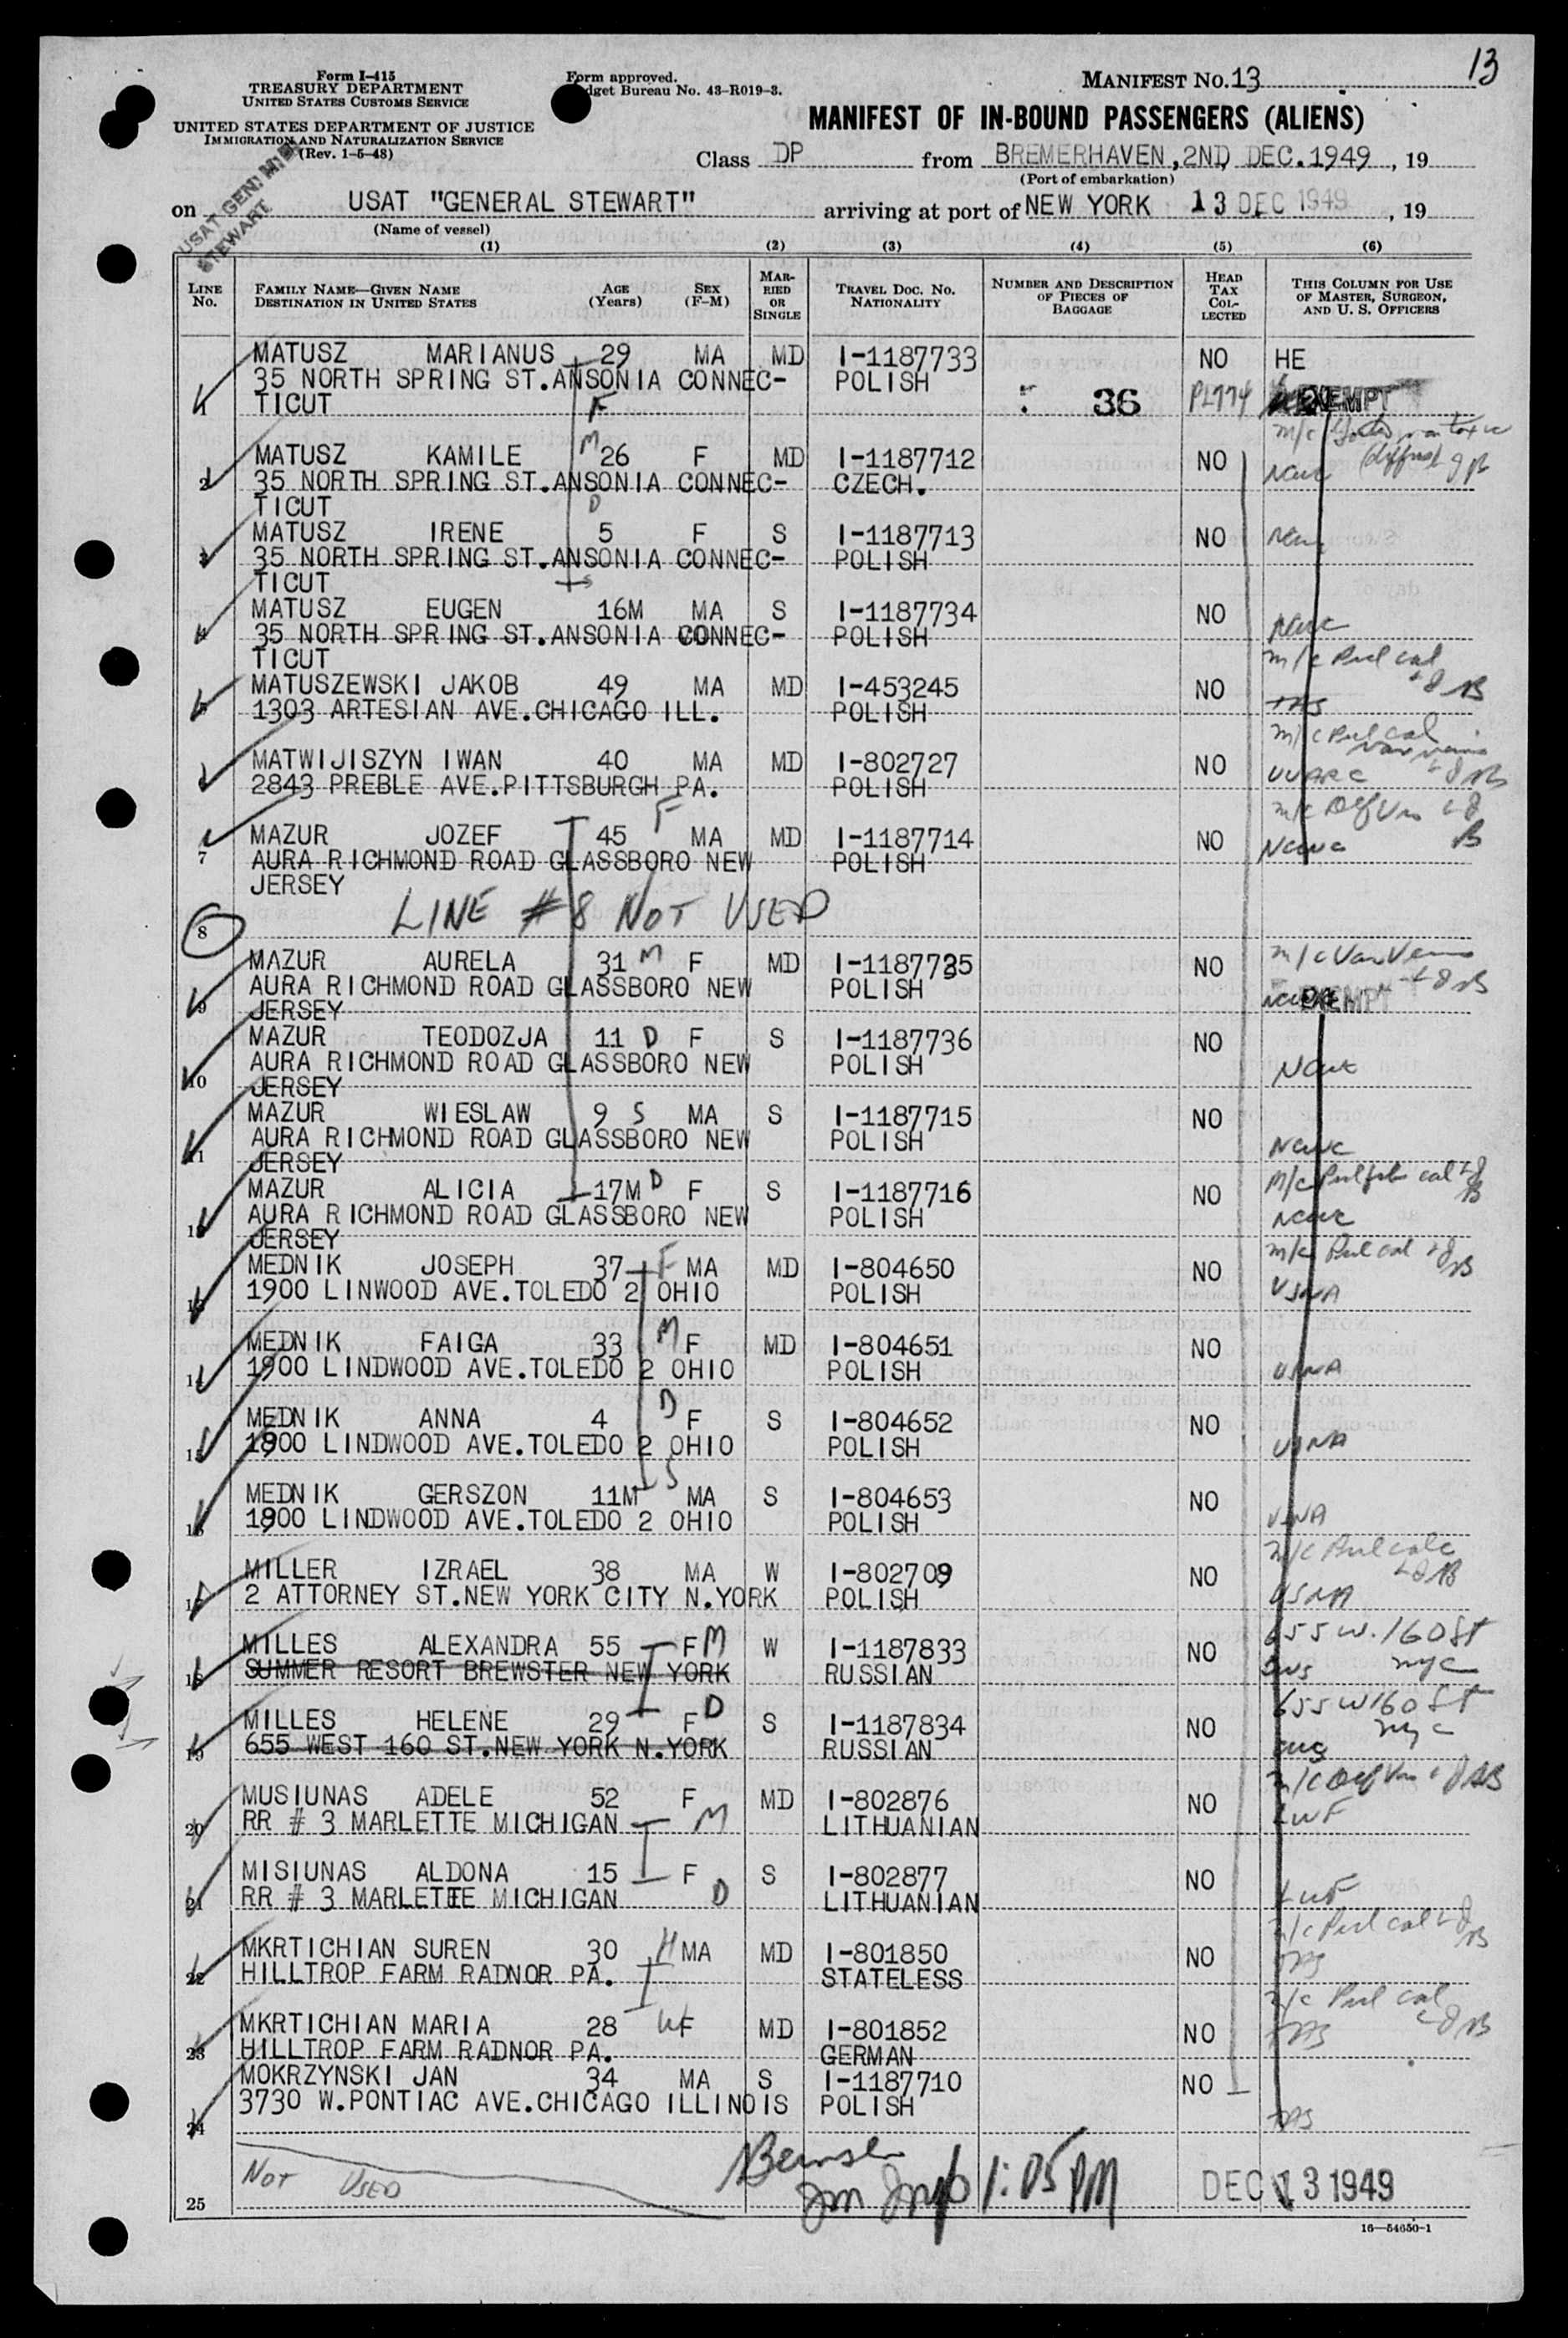 13
Form I-415
TREASURY DEPARTMENT
UNITED STATES CUSTOMS SERVICE
UNITED STATES DEPARTMENT OF JUSTICE
IMMIGRATION AND NATURALIZATION SERVICE
(Rev. 1-5-48)
Form approved.
dget Bureau No. 43-R019-3.
MANIFEST No. 13
MANIFEST OF IN-BOUND PASSENGERS (ALIENS)
Class DP from BREMERHAVEN, 2ND DEC. 1949, 19
(Port of embarkation)
USAT GEN. M.B.
STEWART
on USAT "GENERAL STEWART" arriving at port of NEW YORK 13 DEC 1949, 19
(Name of vessel)
(1) (2) (3) (4) (5) (6)
LINE No.
FAMILY NAME—GIVEN NAME
DESTINATION IN UNITED STATES
AGE (Years)
SEX (F-M)
MARRIED OR SINGLE
TRAVEL DOC. No. NATIONALITY
NUMBER AND DESCRIPTION OF PIECES OF BAGGAGE
HEAD TAX COLLECTED
THIS COLUMN FOR USE OF MASTER, SURGEON, AND U. S. OFFICERS
MATUSZ MARIANUS 29 MA MD I-1187733 NO HE
35 NORTH SPRING ST.ANSONIA CONNEC- POLISH
1 TICUT F 36 PL774 EXEMPT
MATUSZ KAMILE M 26 F MD I-1187712 NO
2 35 NORTH SPRING ST.ANSONIA CONNEC- CZECH.
TICUT D
MATUSZ IRENE 5 F S I-1187713 NO
3 35 NORTH SPRING ST.ANSONIA CONNEC- POLISH
TICUT S
MATUSZ EUGEN 16M MA S I-1187734 NO
4 35 NORTH SPRING ST.ANSONIA CONNEC- POLISH
TICUT
m/c Pul cal
MATUSZEWSKI JAKOB 49 MA MD I-453245 NO
5 1303 ARTESIAN AVE.CHICAGO ILL. POLISH
m/c Pul cal
MATWIJISZYN IWAN 40 MA MD I-802727 NO
2843 PREBLE AVE.PITTSBURGH PA. POLISH
F
MAZUR JOZEF 45 MA MD I-1187714 NO
7 AURA RICHMOND ROAD GLASSBORO NEW POLISH
JERSEY
8 LINE #8 NOT USED
MAZUR AURELA 31 M F MD I-1187735 NO m/c Var Veins
AURA RICHMOND ROAD GLASSBORO NEW POLISH
9 JERSEY EXEMPT
MAZUR TEODOZJA 11 D F S I-1187736 NO
AURA RICHMOND ROAD GLASSBORO NEW POLISH
10 JERSEY
MAZUR WIESLAW 9 S MA S I-1187715 NO
11 AURA RICHMOND ROAD GLASSBORO NEW POLISH
JERSEY
MAZUR ALICIA 17M D F S I-1187716 NO
12 AURA RICHMOND ROAD GLASSBORO NEW POLISH
JERSEY
MEDNIK JOSEPH 37 F MA MD I-804650 NO m/c Pul cal
13 1900 LINWOOD AVE.TOLEDO 2 OHIO POLISH USNA
MEDNIK FAIGA 33 M F MD I-804651 NO
14 1900 LINDWOOD AVE.TOLEDO 2 OHIO POLISH USNA
MEDNIK ANNA 4 D F S I-804652 NO
15 1900 LINDWOOD AVE.TOLEDO 2 OHIO POLISH USNA
MEDNIK GERSZON 11M S MA S I-804653 NO
16 1900 LINDWOOD AVE.TOLEDO 2 OHIO POLISH USNA
MILLER IZRAEL 38 MA W I-802709 NO m/c Pul calc
17 2 ATTORNEY ST.NEW YORK CITY N.YORK POLISH USNA
MILLES ALEXANDRA 55 F M W I-1187833 NO 655 W. 160 St
18 SUMMER RESORT BREWSTER NEW YORK RUSSIAN NYC
MILLES HELENE 29 F D S I-1187834 NO 655 W 160 St
19 655 WEST 160 ST.NEW YORK N.YORK RUSSIAN NYC
MUSIUNAS ADELE 52 F MD I-802876 NO
20 RR # 3 MARLETTE MICHIGAN M LITHUANIAN LWF
MISIUNAS ALDONA 15 F S I-802877 NO
21 RR # 3 MARLETIE MICHIGAN D LITHUANIAN LWF
MKRTICHIAN SUREN 30 H MA MD I-801850 NO m/c Pul cal
22 HILLTROP FARM RADNOR PA. STATELESS
MKRTICHIAN MARIA 28 W F MD I-801852 NO m/c Pul cal
23 HILLTROP FARM RADNOR PA. GERMAN
MOKRZYNSKI JAN 34 MA S I-1187710 NO
3730 W.PONTIAC AVE.CHICAGO ILLINOIS POLISH
24
NOT USED
25 1:05 PM DEC 13 1949
16—54650-1